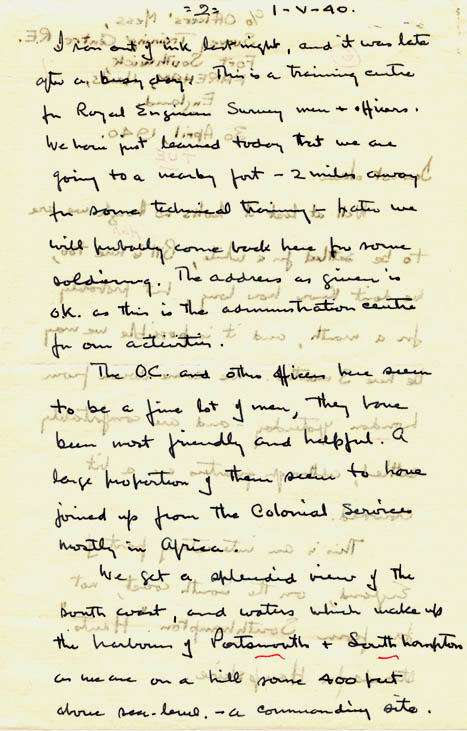 =2= 1-V-40.
I ran out of ink last night, and it was late
after a busy day. This is a training centre
for Royal Engineer Survey men + officers.
We have just learned today that we are
going to a nearby fort - 2 miles away
for some technical training + later we
will probably come back here for some
soldiering. The address as given is
O.K. as this is the administration centre
for our activities.
The O.C. and other officers here seem
to be a fine lot of men, they have
been most friendly and helpful. A
large proportion of them seem to have
joined up from the Colonial Services
mostly in Africa.
We get a splendid view of the
south coast, and waters which make up
the harbours of Portsmouth + Southampton
as we are on a hill some 400 feet
above sea-level. - a commanding site.